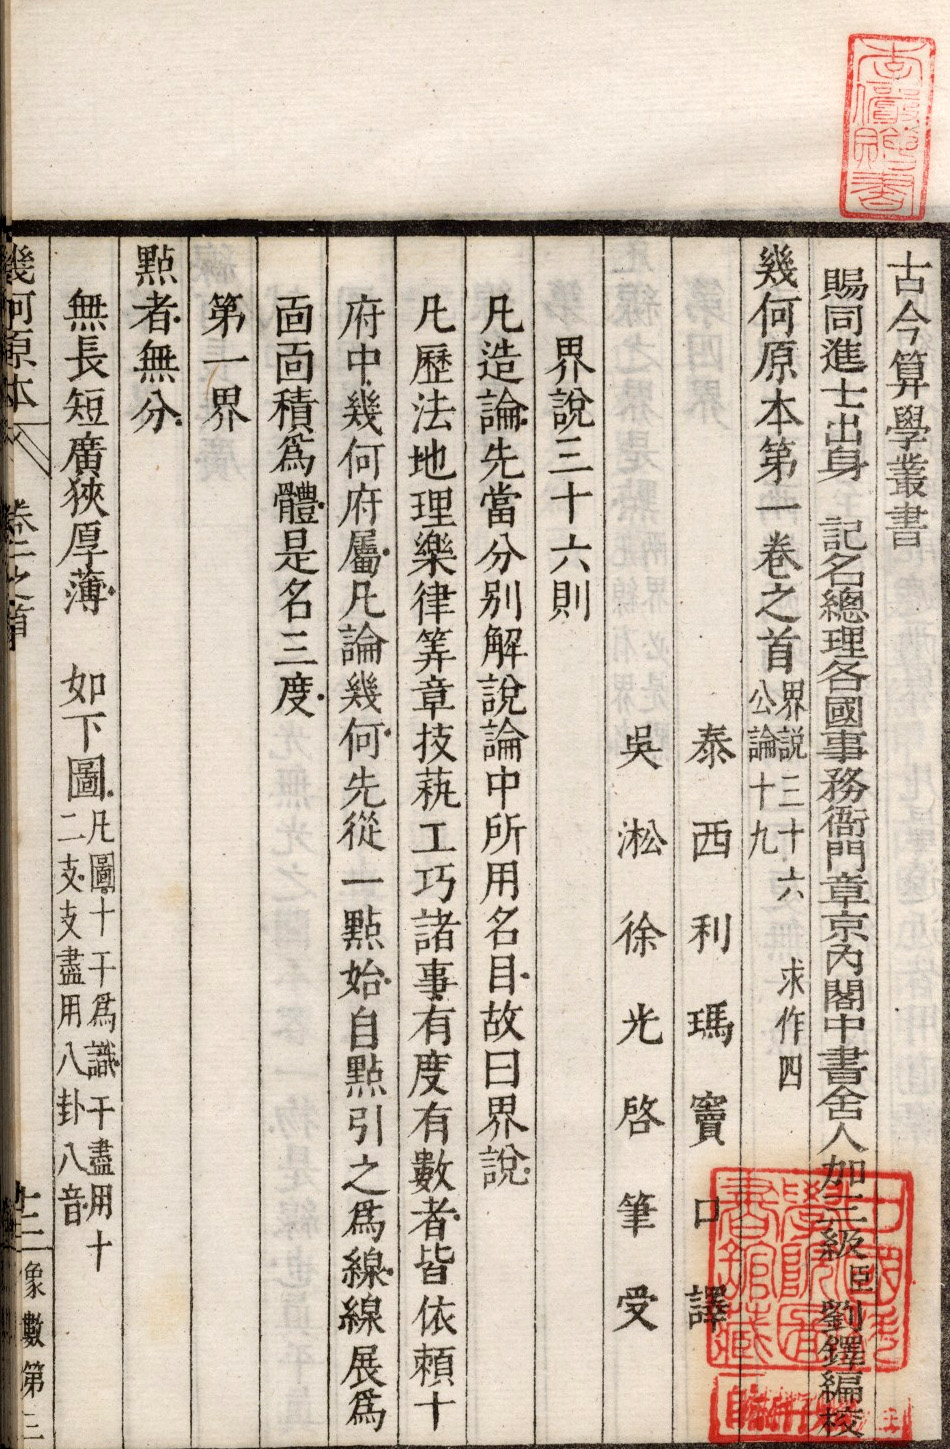 古今算學叢書
賜同進士出身　記名總理各國事務衙門章京內閣中書舍人加三級臣劉鐸編校
幾何原本第一卷之首界說三十六　求作四
公論十九
泰西利瑪竇口譯
吳淞徐光啓筆受
界說三十六則
凡造論先當分別解說論中所用名目故曰界說
凡歷法地理樂律筭章技藝工巧諸事有度有數者皆依頼十
府中幾何府屬凡論幾何先從一點始自點引之爲線線展爲
面面積爲體是名三度
第一界
點者無分
無長短廣狹厚薄　如下圖凡圖十干爲識干盡用十
二支支盡用八卦八音
幾何原本
卷一之首
象數第三